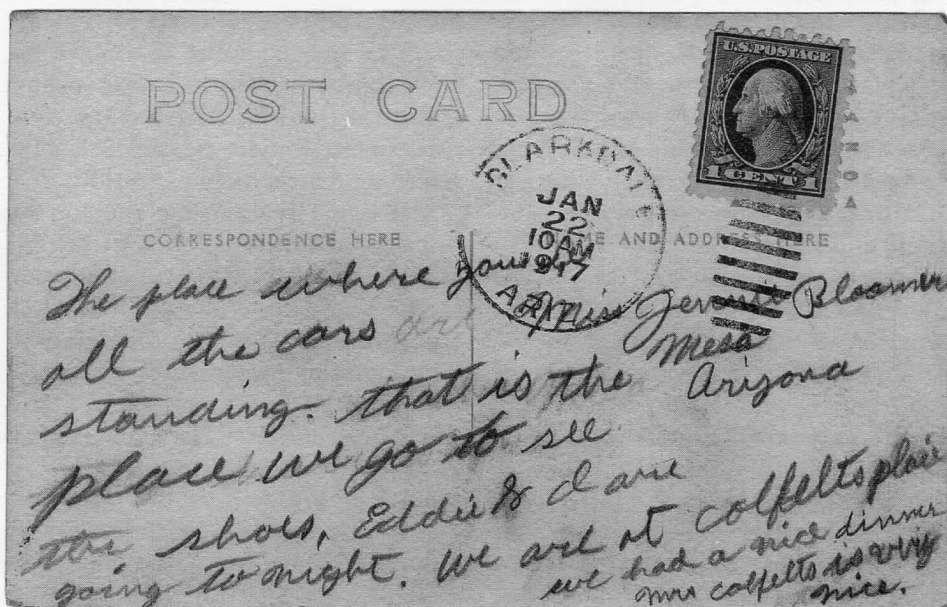 POST CARD
U.S. POSTAGE
1 CENT 1
CLARKDALE
JAN
22
10 AM
1917
ARIZ.
CORRESPONDENCE HERE
NAME AND ADDRESS HERE
The place where you
all the cars are
standing. that is the
place we go to see
the shoes, Eddie & I are
going to night. We are at Colfelts place
we had a nice dinner
Mrs Colfelts is very
nice.
Miss Jennie Bloomer
Mesa
Arizona